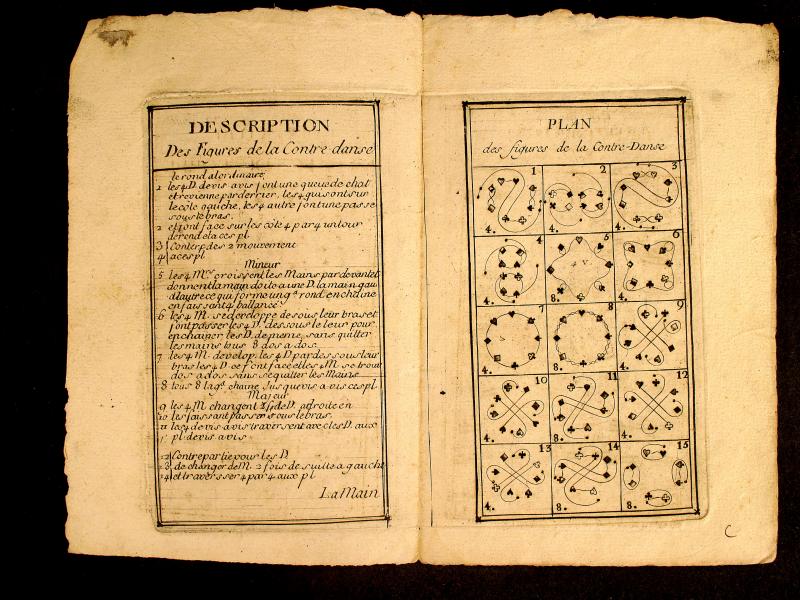 DESCRIPTION
Des Figures de la Contre-danse
le rond alordinaire,
1 les 4 D. devis avis font une queue de chat
et revienne par derrier, les 4 qui sont sur
le côte gauche, les 4 autre font une passe
sous le bras.
2 et font face sur les côte 4 par 4 un tour
de rend a laces pl.
3 Conterp des 2 mouvement
4 aces pl
Mineur
5 les 4 Mrs croissent les Mains par devant et
donnent la main doito a une D. la main gau
d'lautre ce qui forme un gd rond enchaine
en faissant 4 ballancé
6 les 4 M. se developpe desous leur bras et
font passer les 4 D. dessous le leur pour
enchainer les D. de meme, sans quitter
les mains tous 8 dos a dos.
7 les 4 M. develop. les 4 D par dessous leur
bras les 4 D. ce font face et les 4 M. se trou
dos a dos sans se quitter les Mains
8 tous 8 la gd chaine Jusque vis a vis ces pl
Majeur
9 les 4 M. changent de D. adroite en
10 les faissant passer sous le bras.
11 les 4 devis avis traversent avec les D. aux
pl. devis avis
12 Contrepartie pour les D.
13 de changer de M. 2 fois de suitte a gauche
14 et traversser 4 par 4 aux pl
La Main
PLAN
des figures de la Contre-Danse
1 2 3
4. 4. 4.
4 5 6
4 V.
4. 8. 4.
7 8 9
V
4. 8. 4.
10 11 12
4. 8. 4.
13 14 15
4. 8. 8.
C